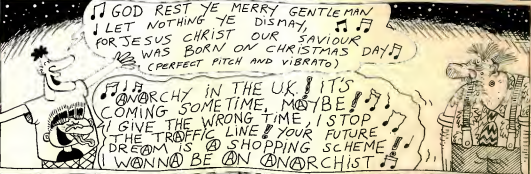 ♫ GOD REST YE MERRY GENTLEMAN
♩ LET NOTHING YE DISMAY, ♫ ♫
FOR JESUS CHRIST OUR SAVIOUR
WAS BORN ON CHRISTMAS DAY ♫
(PERFECT PITCH AND VIBRATO)
♫ ♪ ⒶNⒶRCHY IN THE U.K.! IT'S
COMING SOMETIME, MⒶYBE! ♫
I GIVE THE WRONG TIME, I STOP
THE TRⒶFFIC LINE! YOUR FUTURE
DREⒶM IS Ⓐ SHOPPING SCHEME!
I WⒶNNⒶ BE ⒶN ⒶNⒶRCHIST ♫